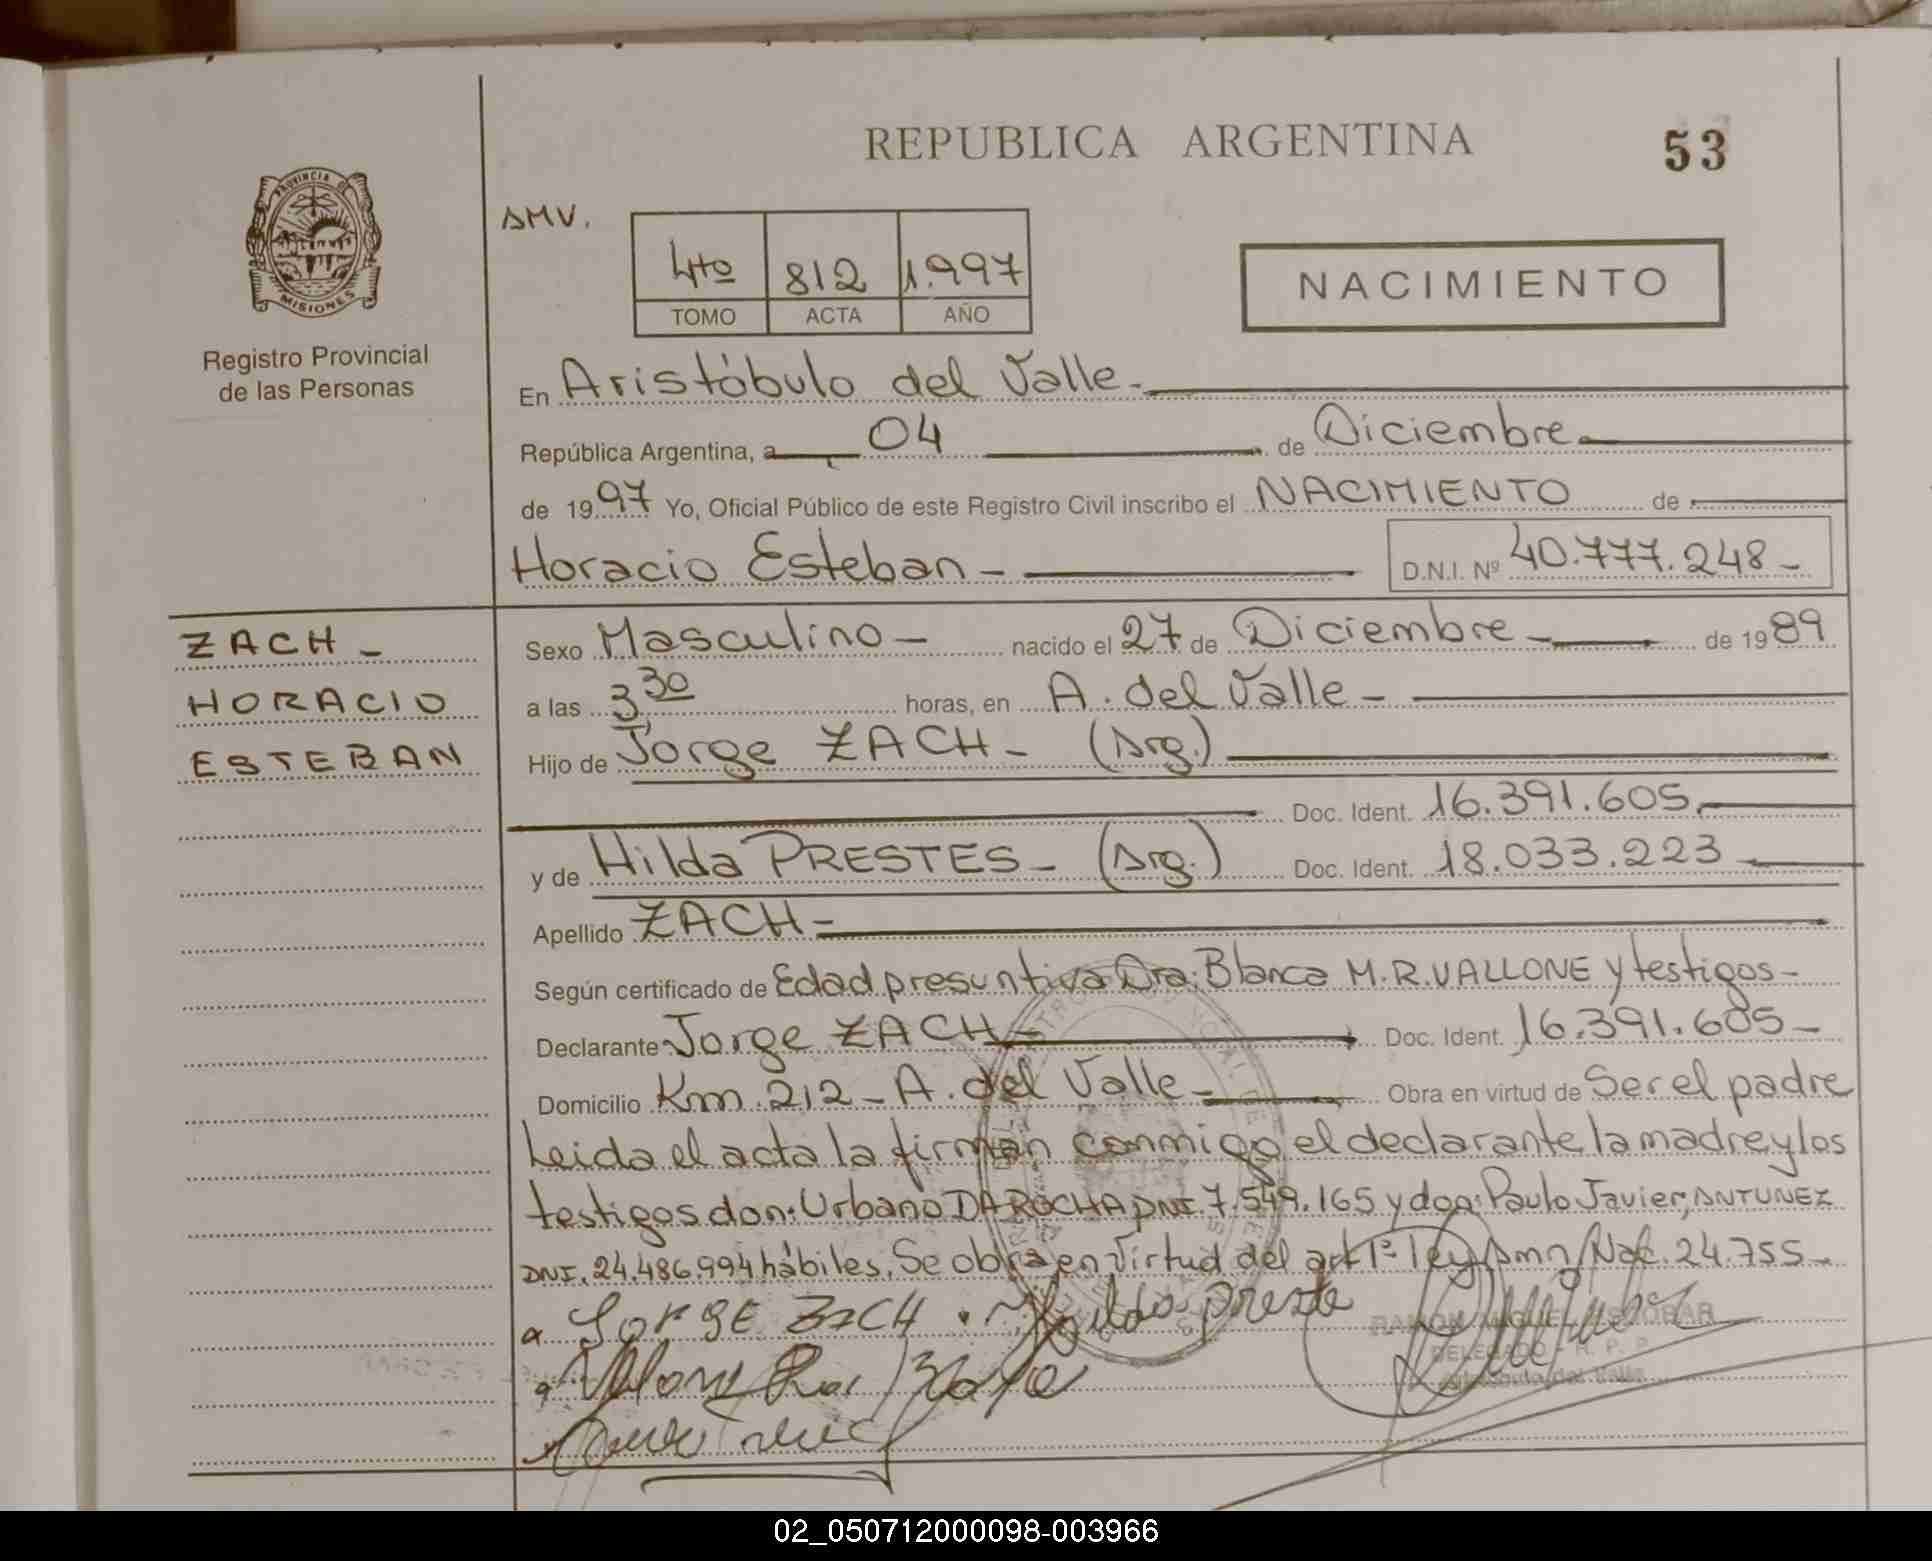 REPUBLICA ARGENTINA
53
PROVINCIA DE
MISIONES
Registro Provincial
de las Personas
AMV.
4to 812 1.997
TOMO ACTA AÑO
NACIMIENTO
En Aristóbulo del Valle.-
República Argentina, a 04 de Diciembre
de 1997 Yo, Oficial Público de este Registro Civil inscribo el NACIMIENTO de
Horacio Esteban - D.N.I. Nº 40.777.248-
ZACH -
HORACIO
ESTEBAN
Sexo Masculino - nacido el 27 de Diciembre - de 1989
a las 3,30 horas, en A. del Valle -
Hijo de Jorge ZACH - (Arg.)
Doc. Ident. 16.391.605.
y de Hilda PRESTES - (Arg.) Doc. Ident. 18.033.223
Apellido ZACH -
Según certificado de Edad presuntiva Dra: Blanca M.R. VALLONE y testigos-
Declarante Jorge ZACH - Doc. Ident. 16.391.605-
Domicilio Km. 212 - A. del Valle - Obra en virtud de Ser el padre
Leida el acta la firman conmigo el declarante la madre y los
testigos don: Urbano DA ROCHA DNI. 7.549.165 y don: Paulo Javier, ANTUNEZ
DNI. 24.486.994 hábiles. Se obra en virtud del art 1º ley Amn, Nac. 24.755-
JORGE ZACH
RAMON MIGUEL ESCOBAR
DELEGADO - R. P. P.
Aristóbulo del Valle
02_050712000098-003966